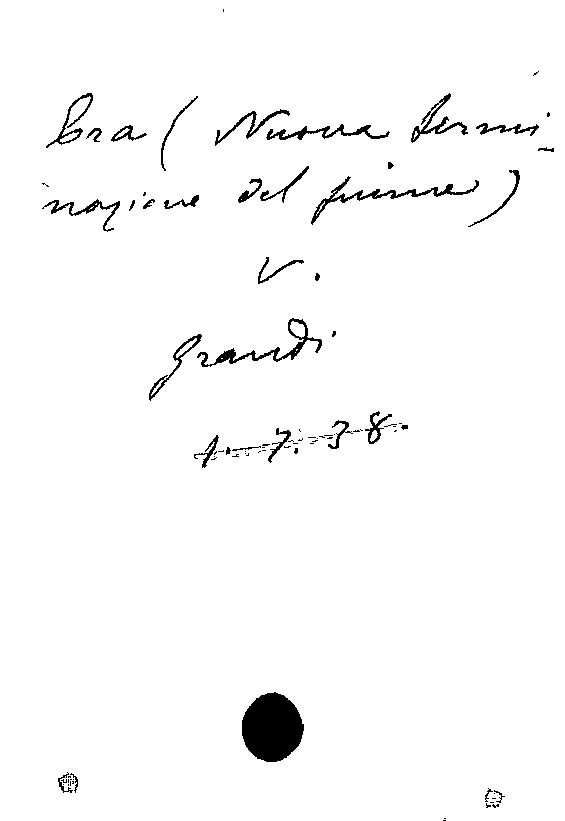 Era ( Nuova termi-
nazione del fiume )
v.
Grandi
1. 7. 38.